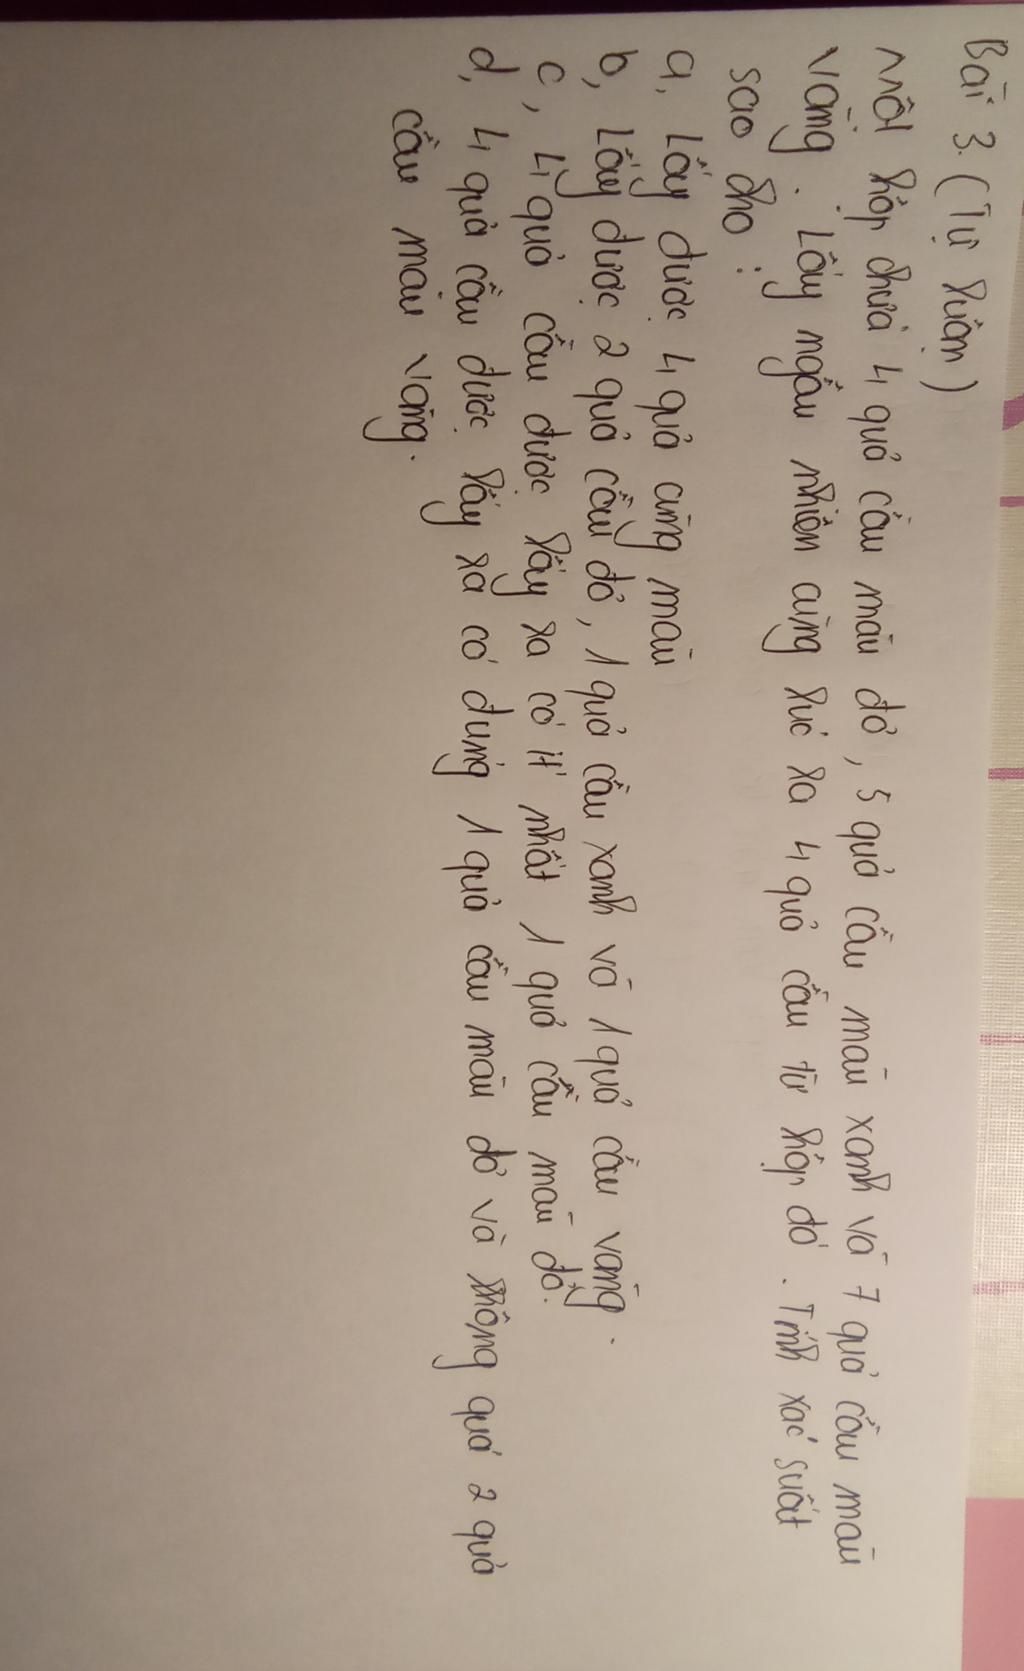 Bài 3. (Tự luận)
Một hộp chứa 4 quả cầu màu đỏ, 5 quả cầu màu xanh và 7 quả cầu màu
vàng. Lấy ngẫu nhiên cùng lúc ra 4 quả cầu từ hộp đó. Tính xác suất
sao cho:
a, Lấy được 4 quả cùng màu
b, Lấy được 2 quả cầu đỏ, 1 quả cầu xanh và 1 quả cầu vàng.
c, 4 quả cầu được lấy ra có ít nhất 1 quả cầu màu đỏ.
d, 4 quả cầu được lấy ra có đúng 1 quả cầu màu đỏ và không quá 2 quả
cầu màu vàng.